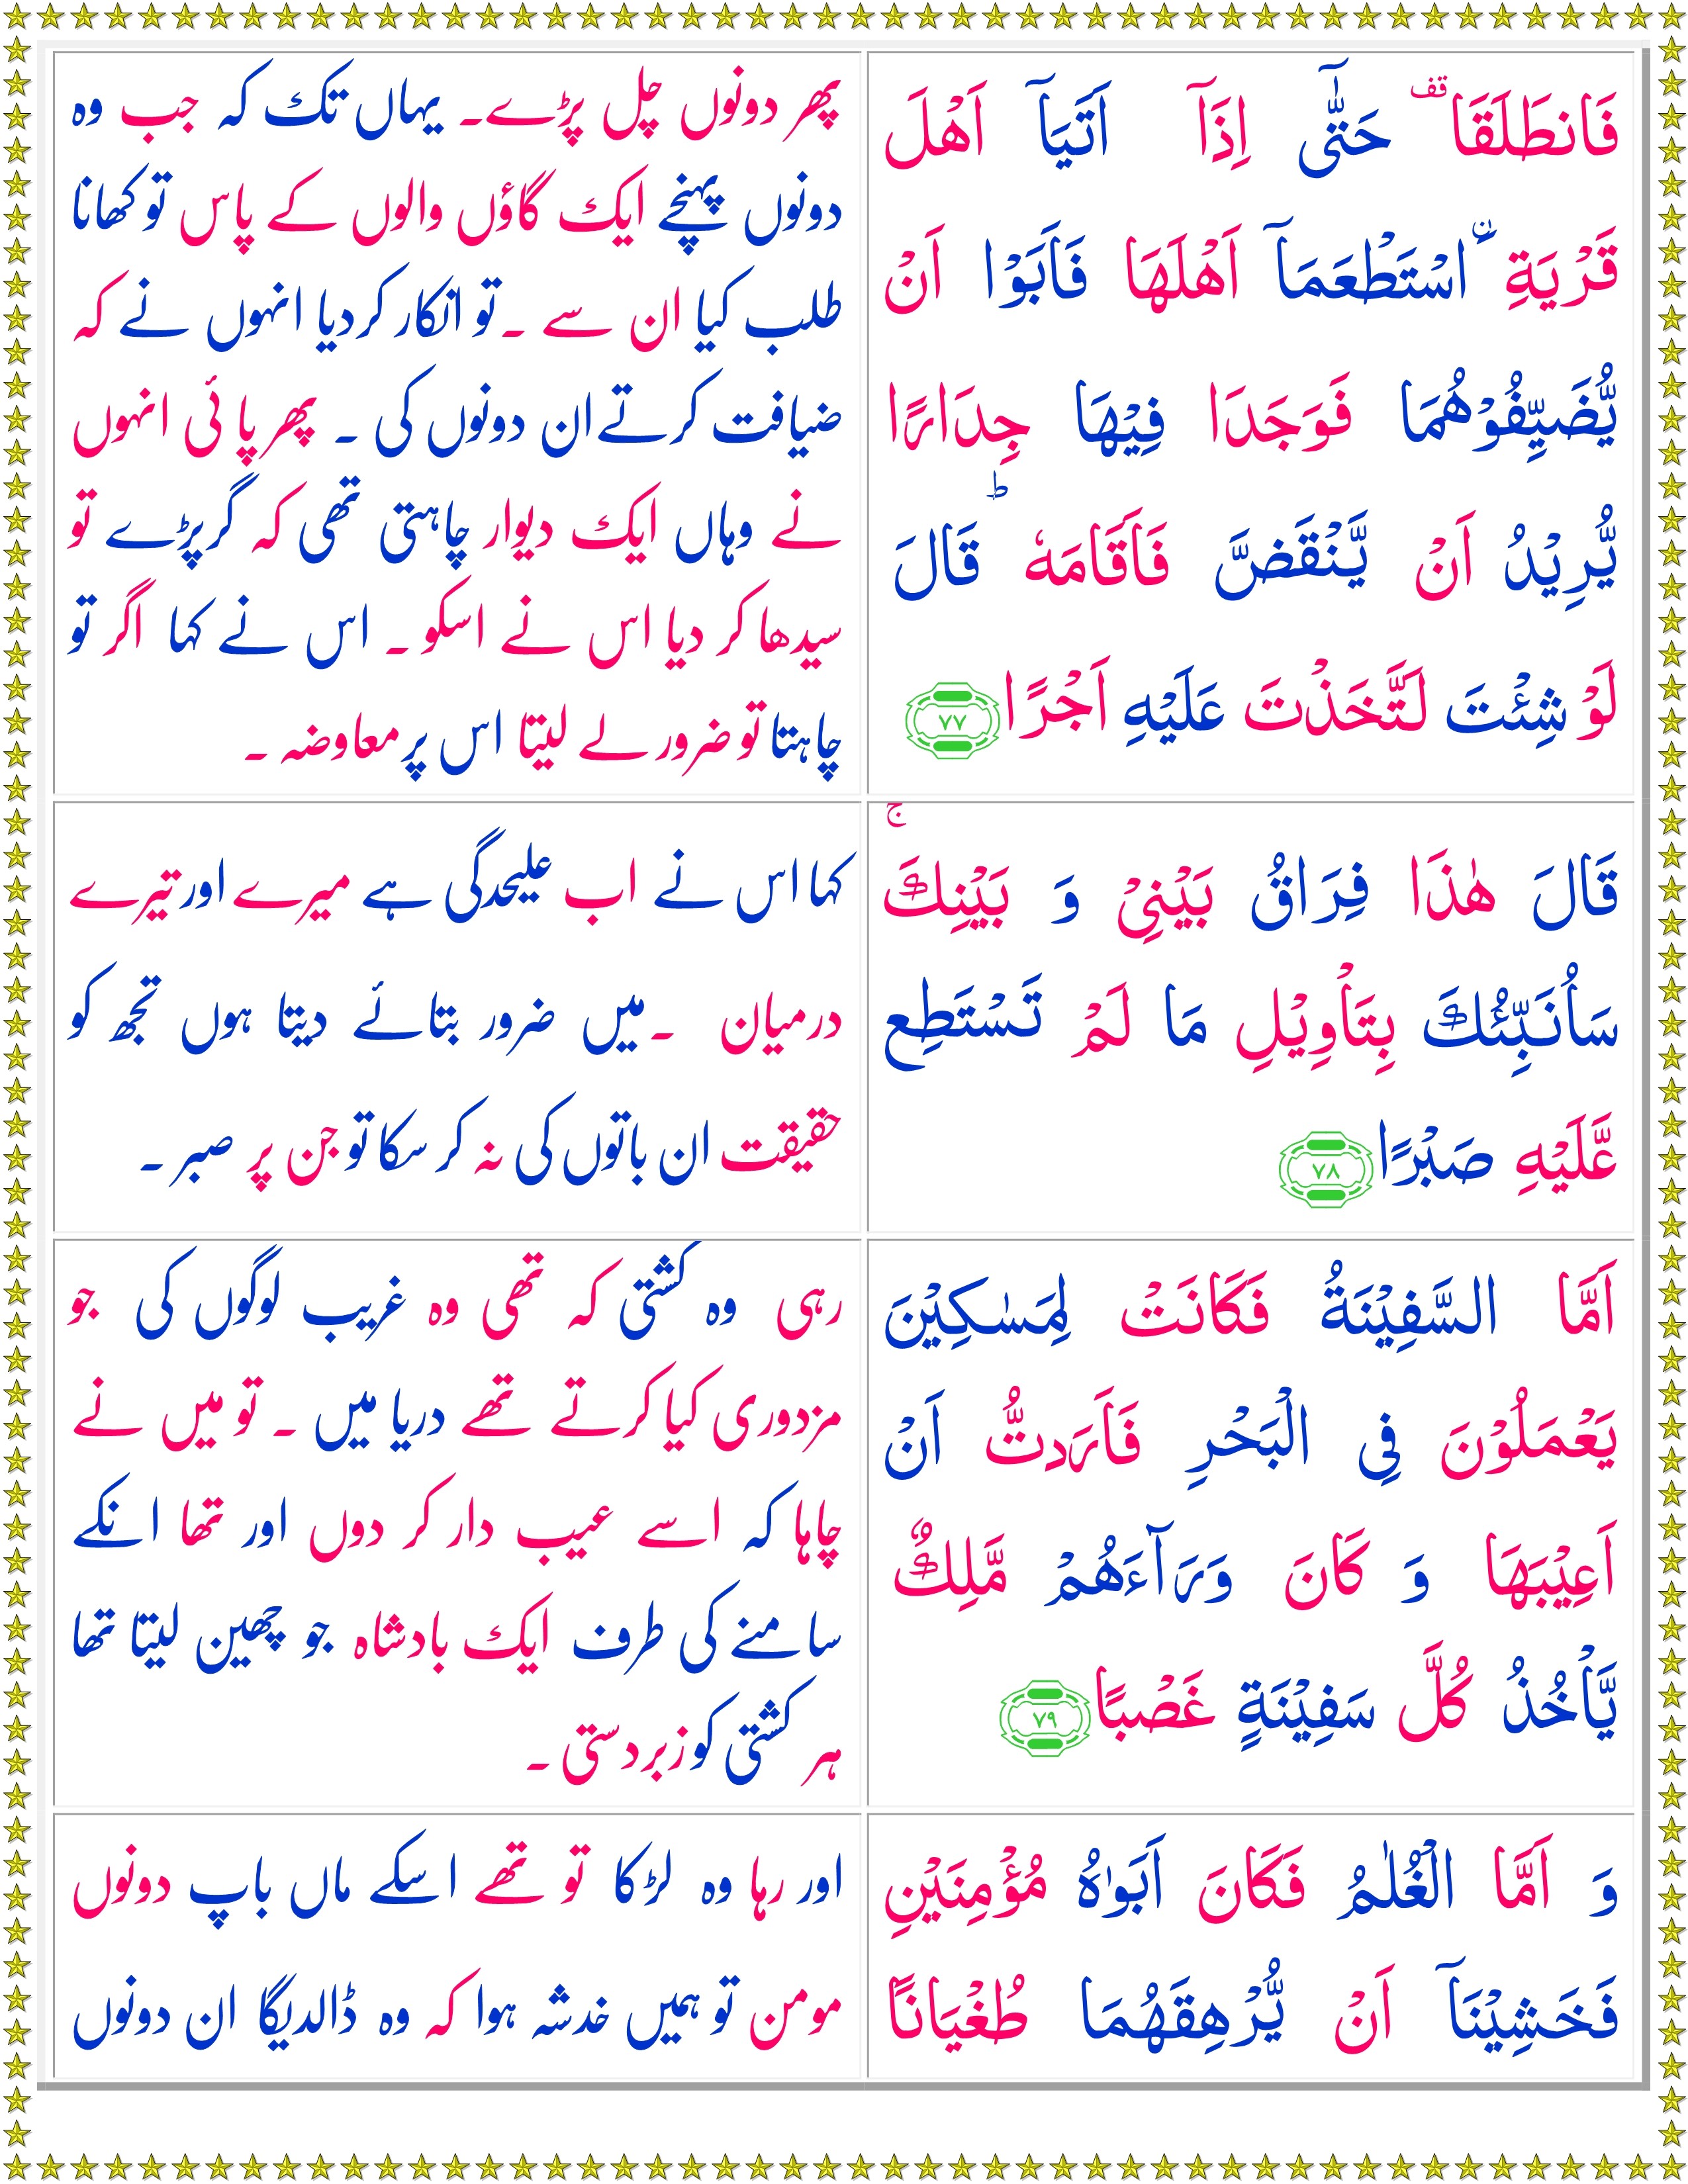 فَانطَلَقَا ۫ حَتّٰۤى اِذَاۤ اَتَيَاۤ اَهْلَ
قَرْيَةِ ۟اسْتَطْعَمَاۤ اَهْلَهَا فَاَبَوْا اَنْ
يُّضَيِّفُوْهُمَا فَوَجَدَا فِيْهَا جِدَارًا
يُّرِيْدُ اَنْ يَّنْقَضَّ فَاَقَامَهٗ ؕ قَالَ
لَوْ شِئْتَ لَتَّخَذْتَ عَلَيْهِ اَجْرًا ﴿۷۷﴾
پھر دونوں چل پڑے۔ یہاں تک کہ جب وہ
دونوں پہنچے ایک گاؤں والوں کے پاس تو کھانا
طلب کیا ان سے ۔ تو انکار کردیا انہوں نے کہ
ضیافت کرتے ان دونوں کی ۔ پھر پائی انہوں
نے وہاں ایک دیوار چاہتی تھی کہ گرپڑے تو
سیدھا کر دیا اس نے اسکو۔ اس نے کہا اگر تو
چاہتا تو ضرور لے لیتا اس پر معاوضہ ۔
قَالَ هٰذَا فِرَاقُ بَيْنِىْ وَ بَيْنِكَ ۚ
سَاُنَبِّئُكَ بِتَاْوِيْلِ مَا لَمْ تَسْتَطِع
عَّلَيْهِ صَبْرًا ﴿۷۸﴾
کہا اس نے اب علیحدگی ہے میرے اور تیرے
درمیان ۔ میں ضرور بتائے دیتا ہوں تجھ کو
حقیقت ان باتوں کی نہ کر سکا تو جن پر صبر ۔
اَمَّا السَّفِيْنَةُ فَكَانَتْ لِمَسٰكِيْنَ
يَعْمَلُوْنَ فِى الْبَحْرِ فَاَرَدتُّ اَنْ
اَعِيْبَهَا وَ كَانَ وَرَآءَهُمْ مَّلِكٌ
يَّاْخُذُ كُلَّ سَفِيْنَةٍ غَصْبًا ﴿۷۹﴾
رہی وہ کشتی کہ تھی وہ غریب لوگوں کی جو
مزدوری کیا کرتے تھے دریا میں ۔ تو میں نے
چاہا کہ اسے عیب دار کر دوں اور تھا انکے
سامنے کی طرف ایک بادشاہ جو چھین لیتا تھا
ہر کشتی کو زبردستی ۔
وَ اَمَّا الْغُلٰمُ فَكَانَ اَبَوٰهُ مُؤْمِنَيْنِ
فَخَشِيْنَاۤ اَنْ يُّرْهِقَهُمَا طُغْيَانًا
اور رہا وہ لڑکا تو تھے اسکے ماں باپ دونوں
مومن تو ہمیں خدشہ ہوا کہ وہ ڈالدیگا ان دونوں